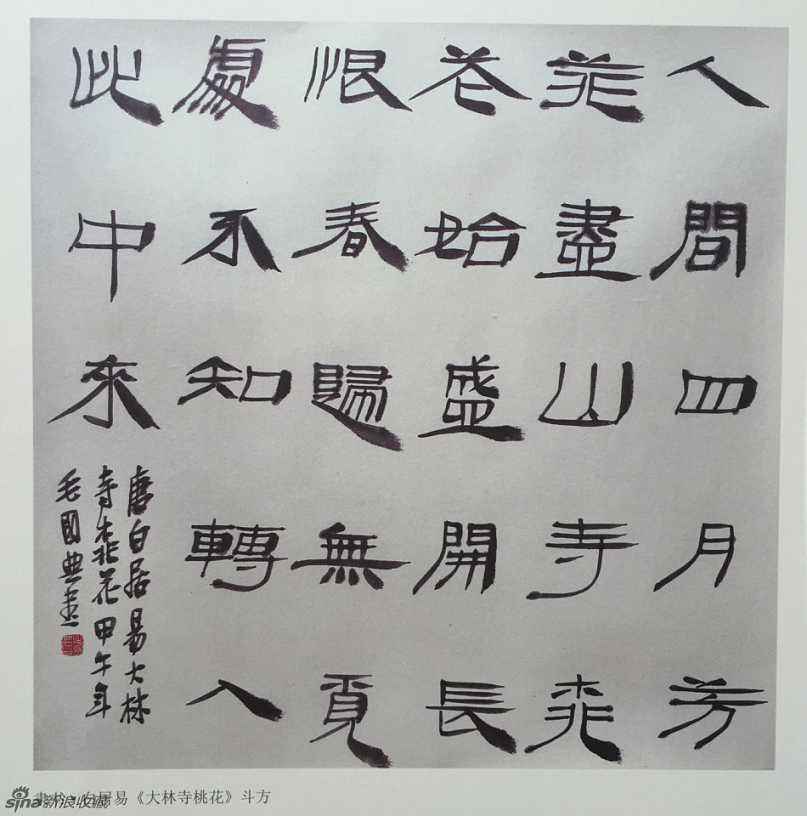 人間四月芳
菲盡山寺桃
花始盛開長
恨春歸無覓
處不知轉入
此中來
唐白居易大林
寺桃花甲午年
毛國典書
白居易《大林寺桃花》斗方
sina新浪收藏